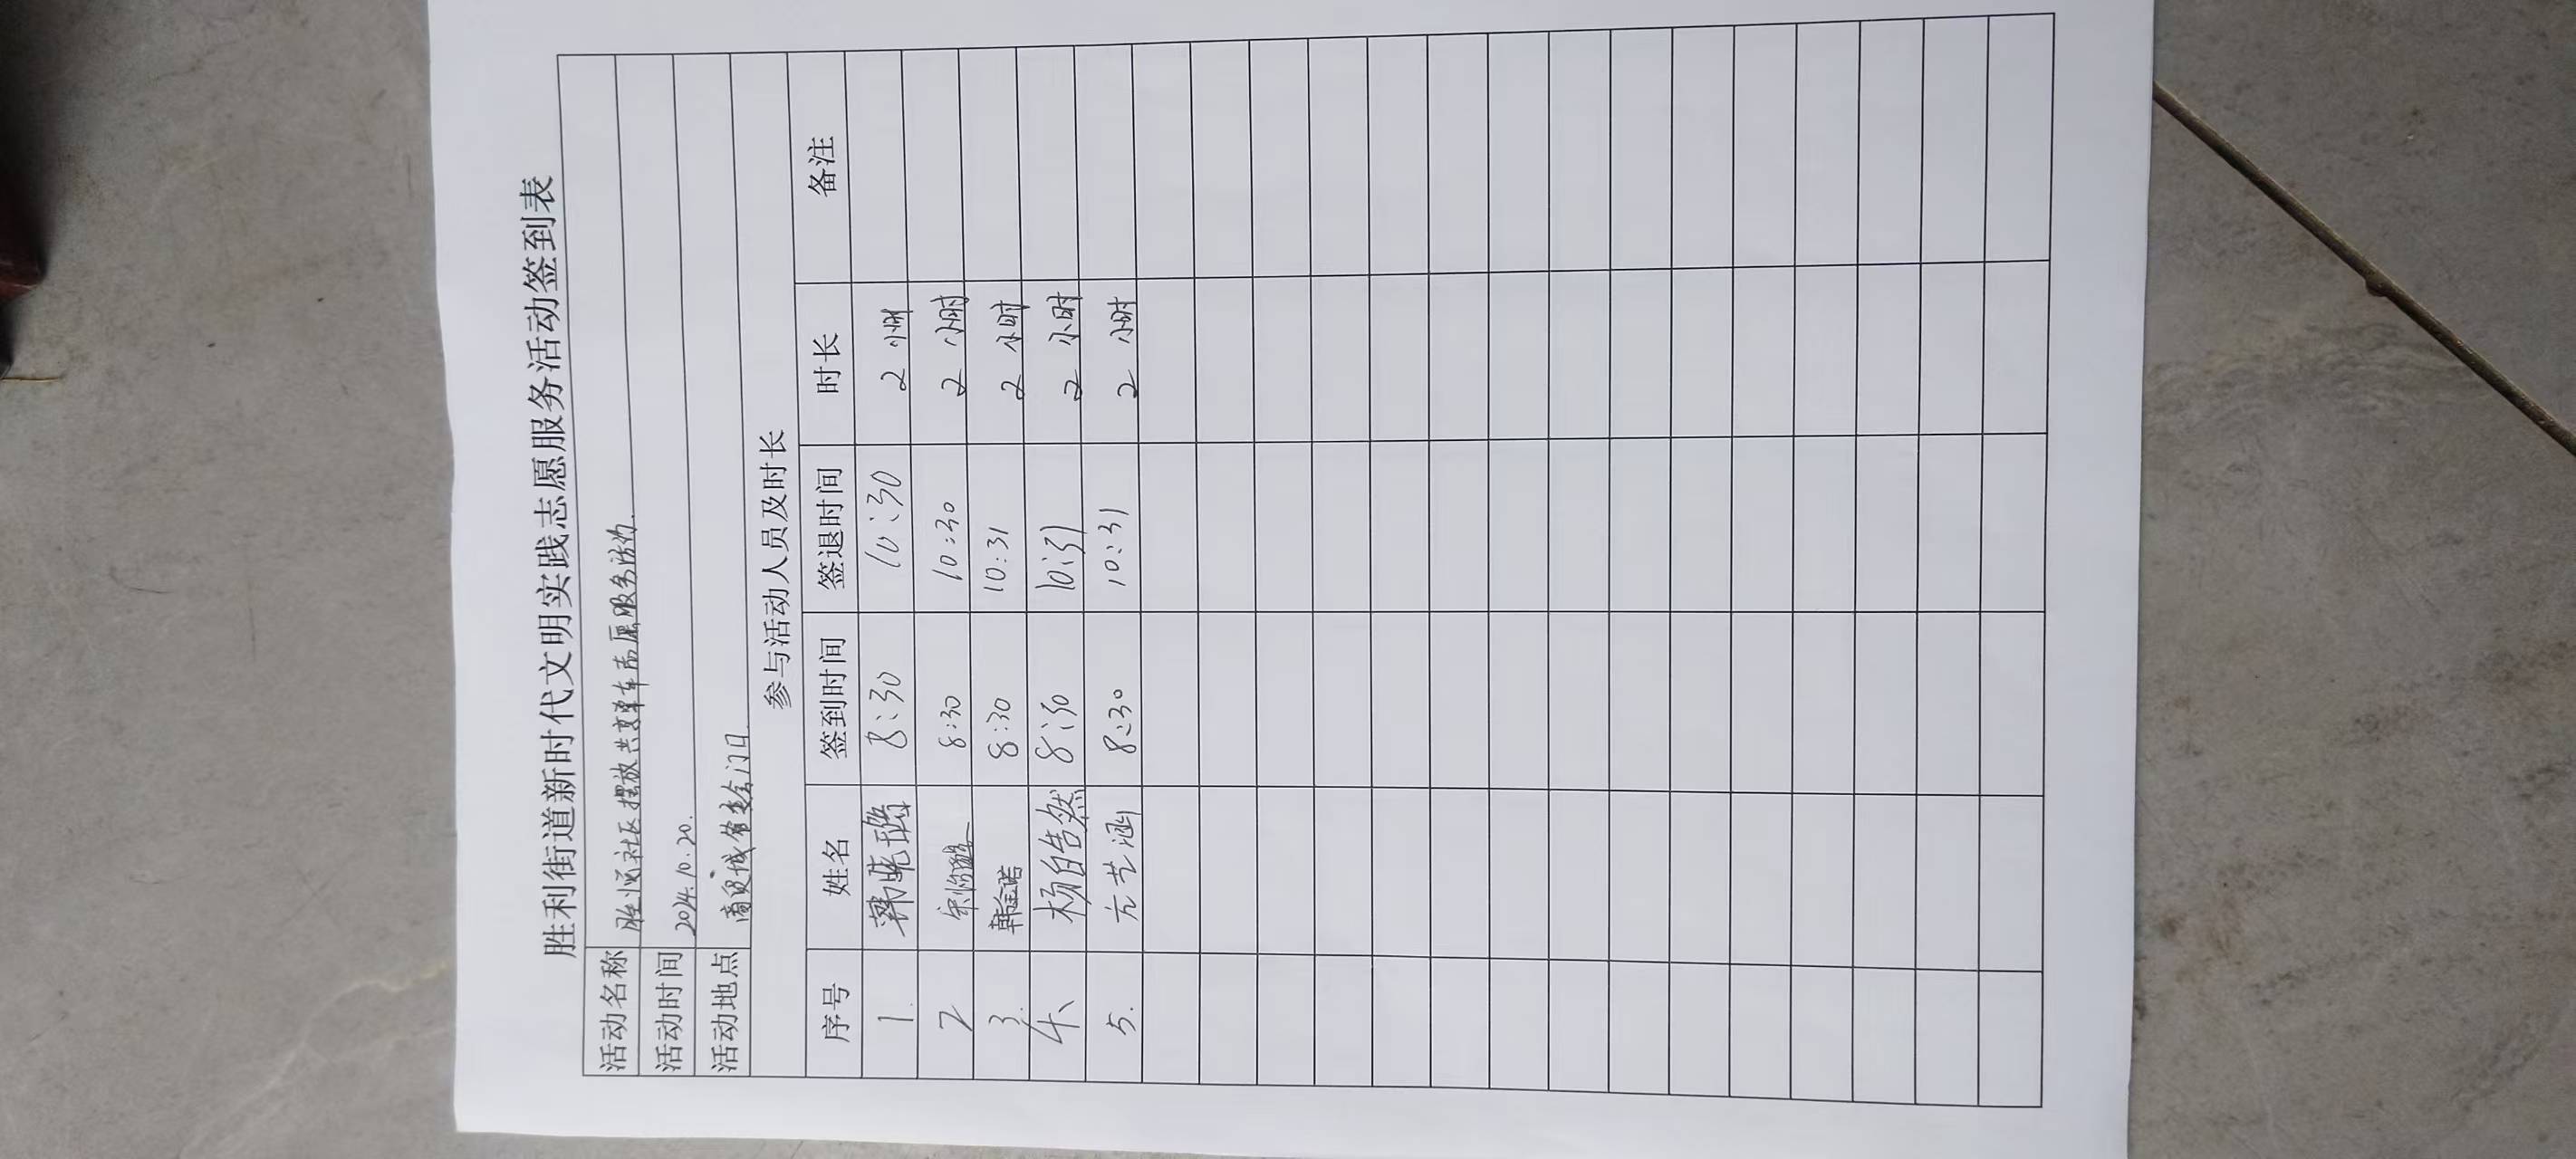 胜利街道新时代文明实践志愿服务活动签到表
活动名称 胜泓社区摆放共享单车志愿服务活动.
活动时间 2024.10.20.
活动地点 商贸城
参与活动人员及时长
序号 姓名 签到时间 签退时间 时长 备注
1. 8:30 10:30 2小时
2 8:30 10:30 2小时
3. 韩金诺 8:30 10:31 2小时
4、 杨皓然 8:30 10:31 2小时
5. 亢艺涵 8:30 10:31 2小时